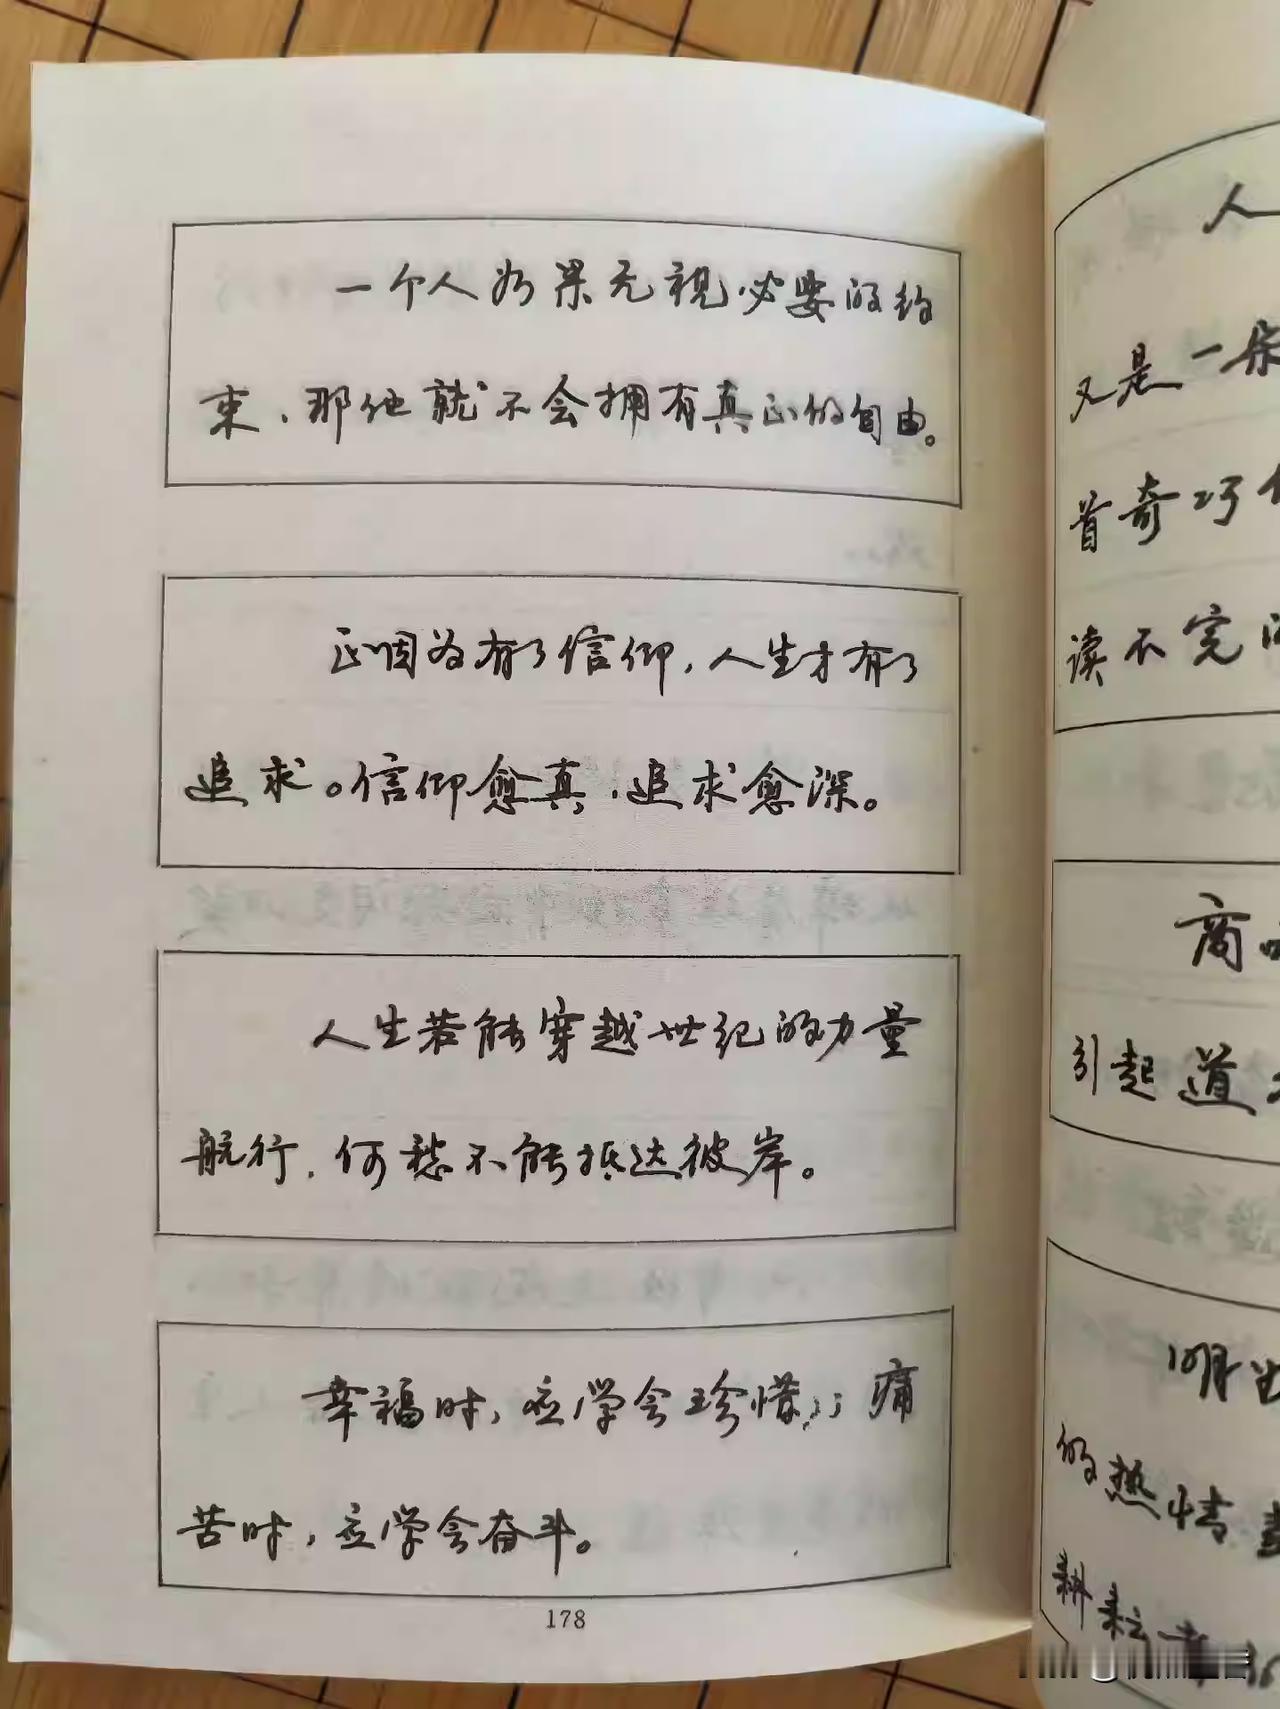 一个人如果无视必要的约
束，那他就不会拥有真正的自由。
正因为有了信仰，人生才有了
追求。信仰愈真，追求愈深。
人生若能穿越世纪的力量
航行，何愁不能抵达彼岸。
幸福时，应学会珍惜；痛
苦时，应学会奋斗。
178
人
又是一朵
首奇巧
读不完
商
引起道
的热情
耕耘